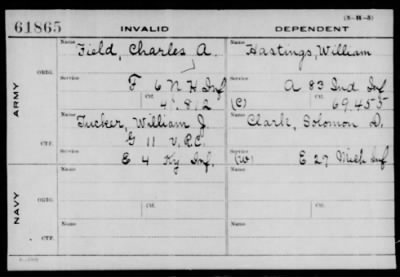 (3-H-3)
61865 INVALID DEPENDENT
Name Field, Charles A. Name Hastings, William
ARMY
ORIG.
Service F 6 N H Inf Service A 83 Ind Inf
Ctf. 41.812 (C) Ctf. 69.455
Name Tucker, William J. Name Clark, Solomon D.
G 11 V.R.C.
CTF.
Service E 4 Ky Inf. Service (W) E 27 Mich Inf
NAVY
ORIG.
Name Name
Service Ctf. Service Ctf.
Name Name
CTF.
Service Service